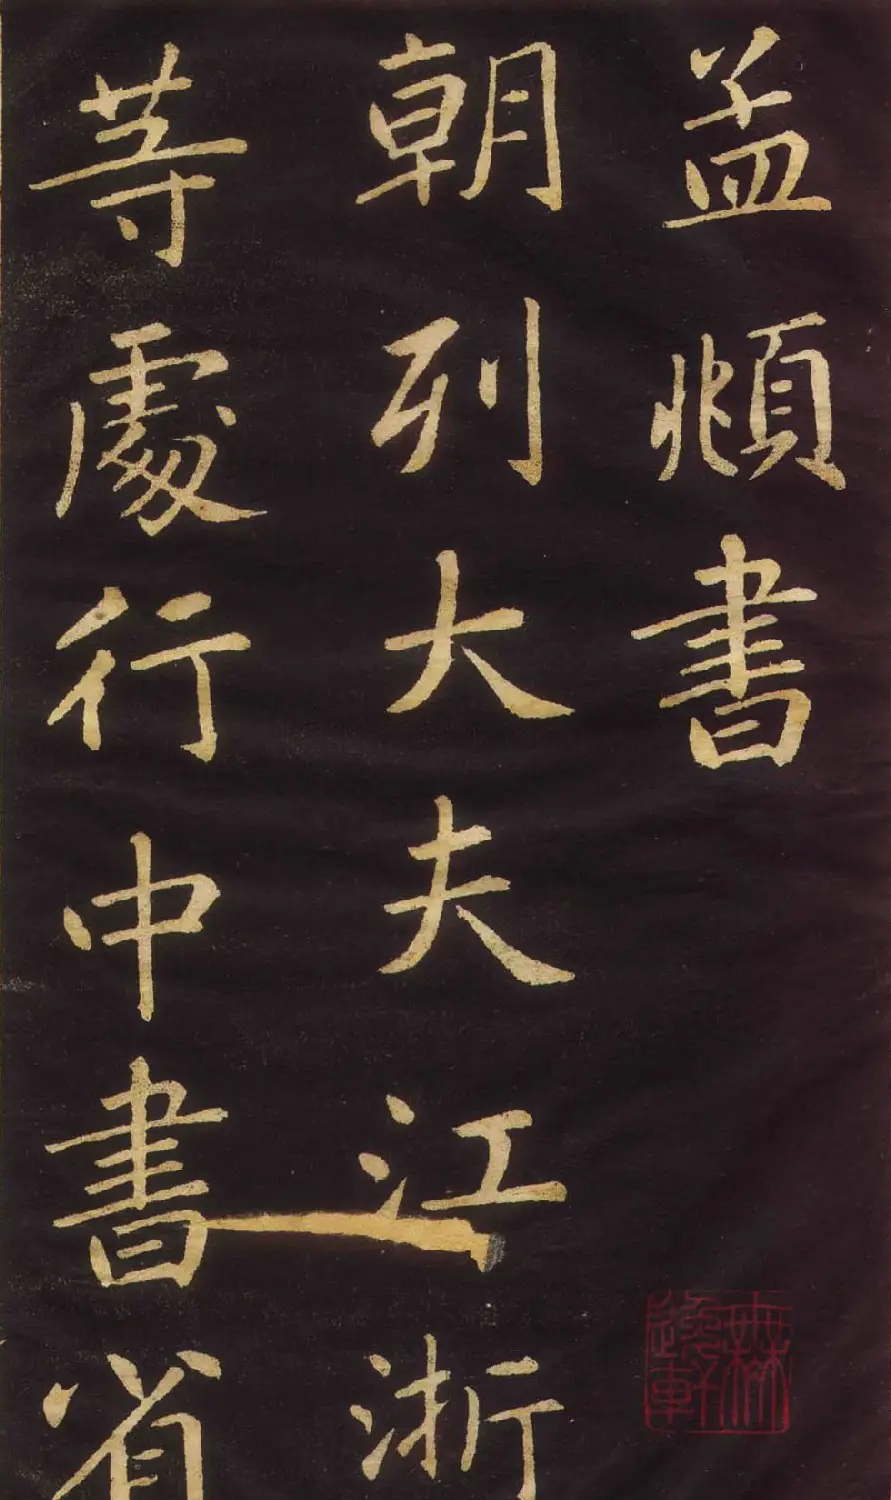 孟頫書
朝列大夫江浙
等處行中書省
無逸軒